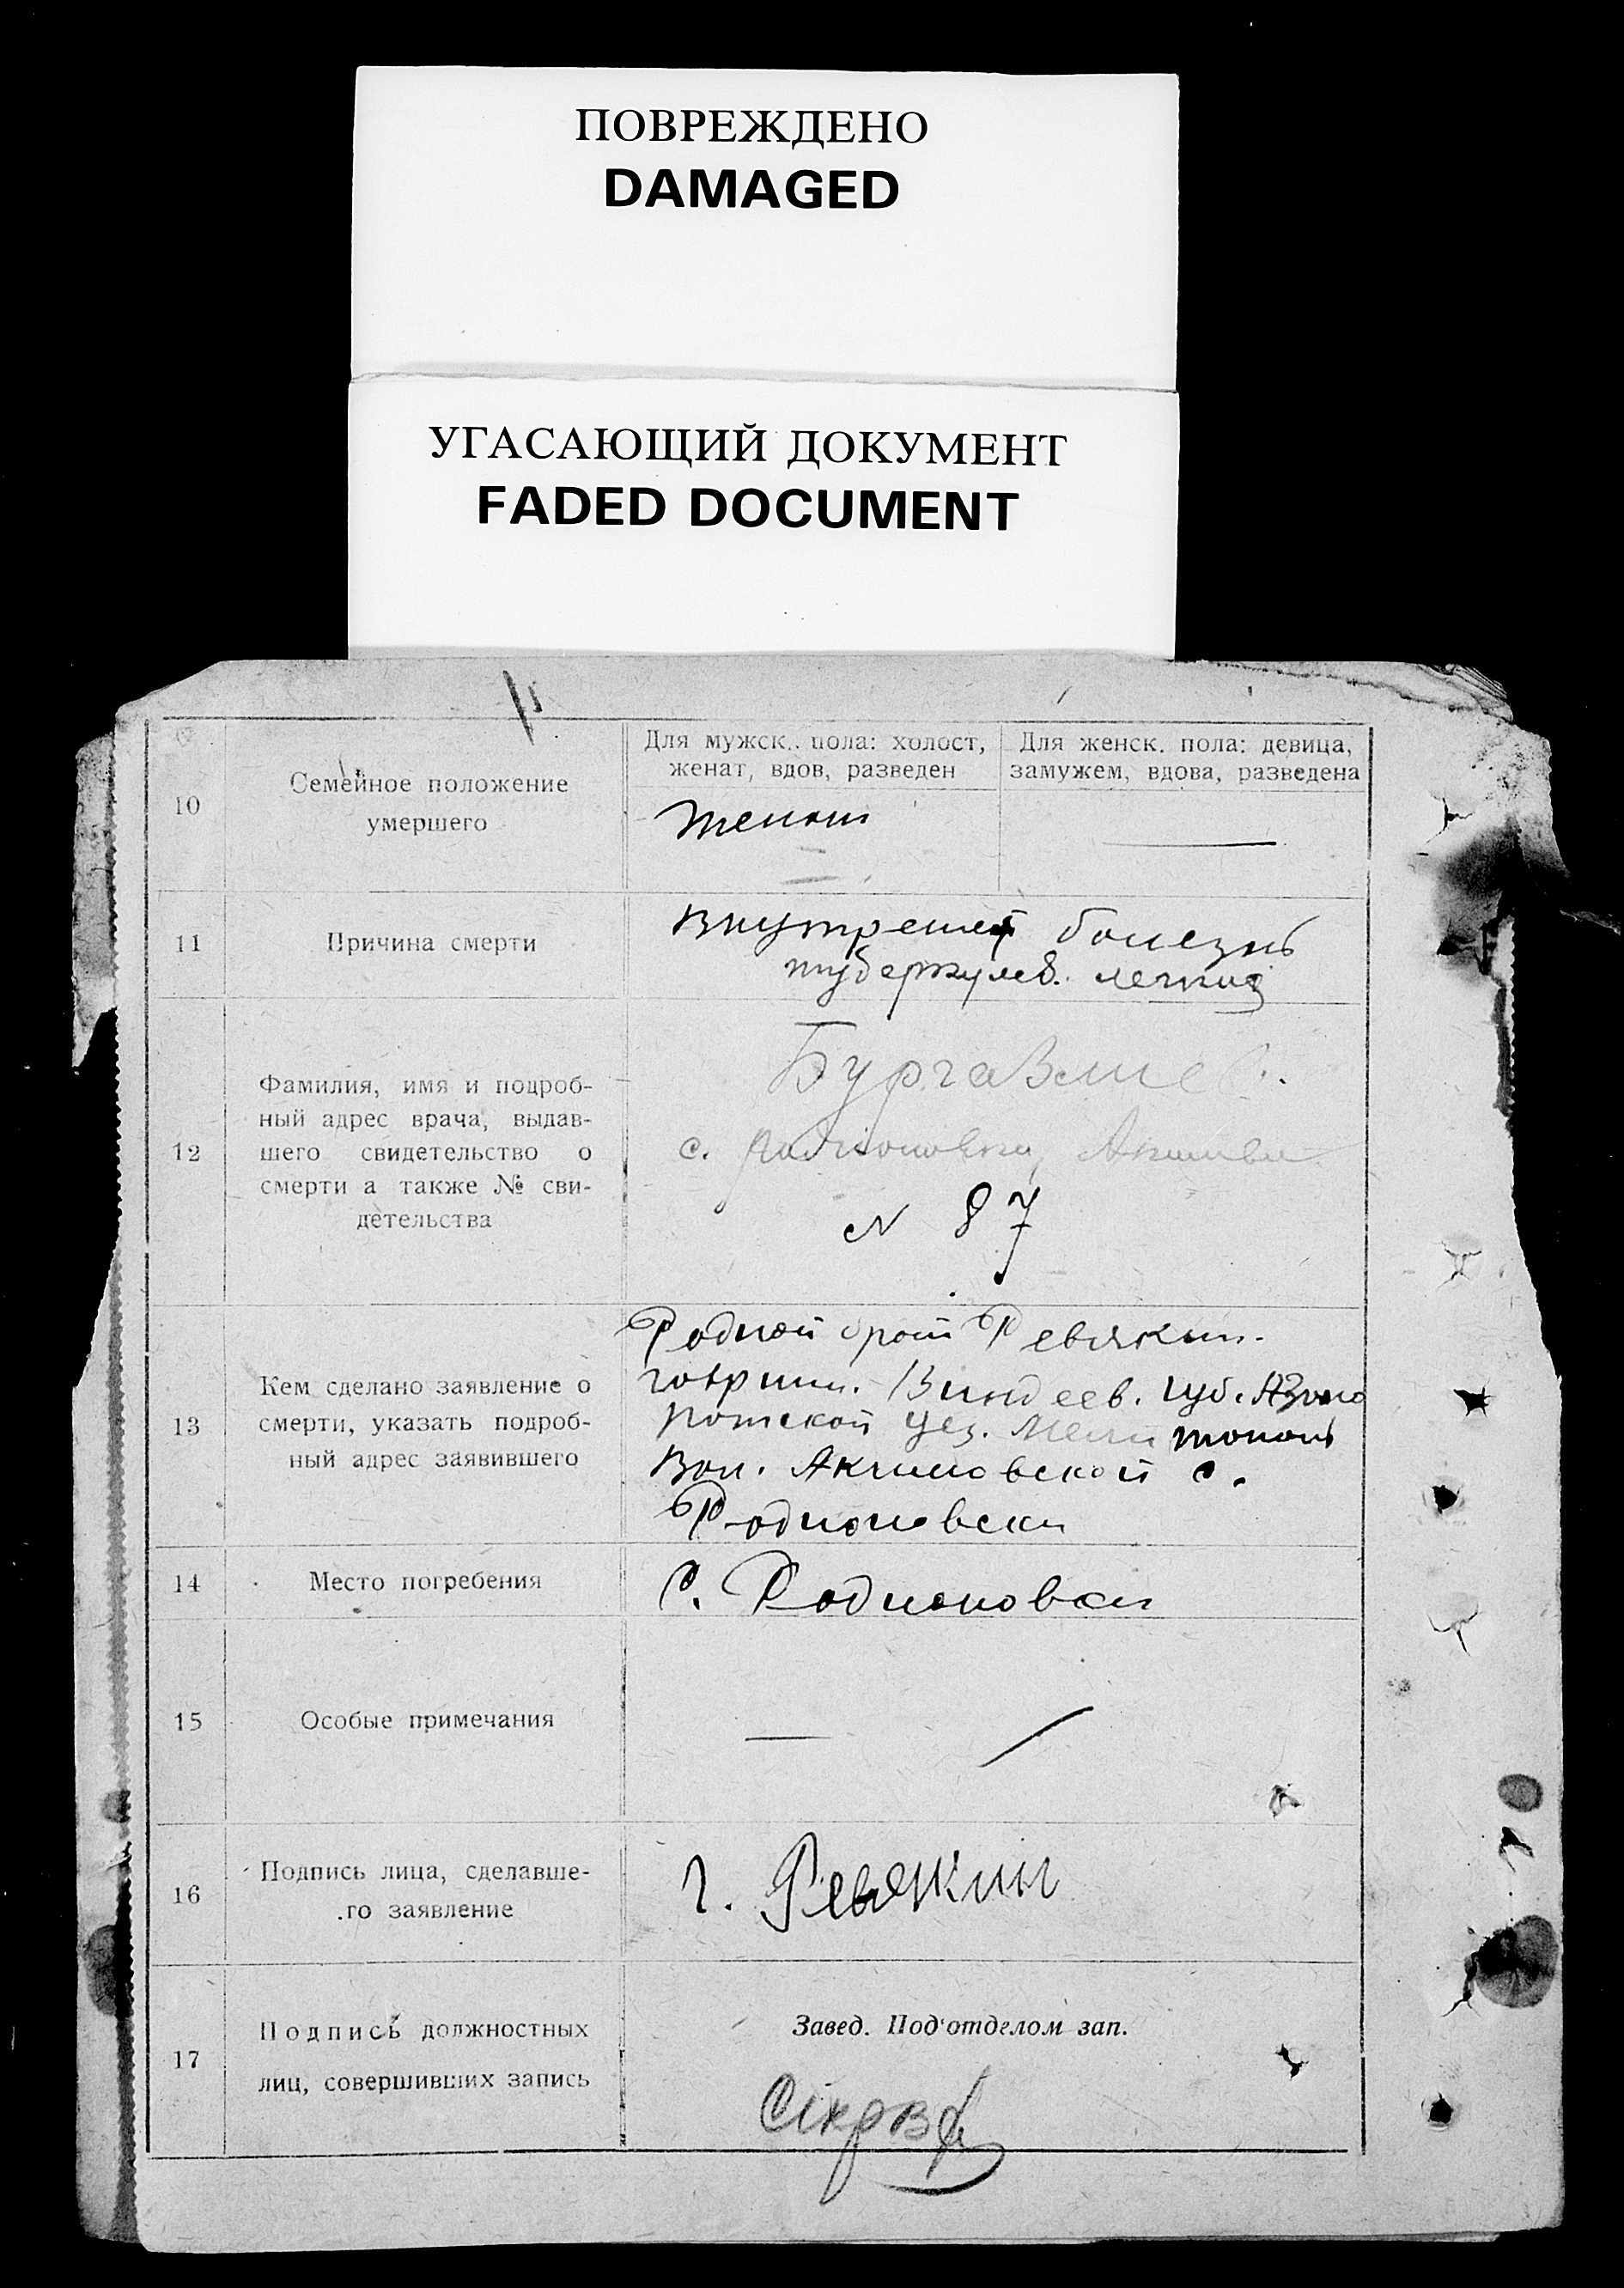 ПОВРЕЖДЕНО
DAMAGED
УГАСАЮЩИЙ ДОКУМЕНТ
FADED DOCUMENT
10
Семейное положение
умершего
Для мужск. пола: холост,
женат, вдов, разведен
Для женск. пола: девица,
замужем, вдова, разведена
женат
11
Причина смерти
Внутреней болезнь
туберкулев. легких
12
Фамилия, имя и подроб-
ный адрес врача, выдав-
шего свидетельство о
смерти а также № сви-
детельства
с. Родионовка
N 87
13
Кем сделано заявление о
смерти, указать подроб-
ный адрес заявившего
Родной брат Ревякин
гавриил. губ.
уез. Мелитополь
Вол. Акимовской с.
Родионовки
14
Место погребения
С. Родионовки
15
Особые примечания
16
Подпись лица, сделавше-
го заявление
Г. Ревякин
17
Подпись должностных
лиц, совершивших запись
Завед. Под'отделом зап.